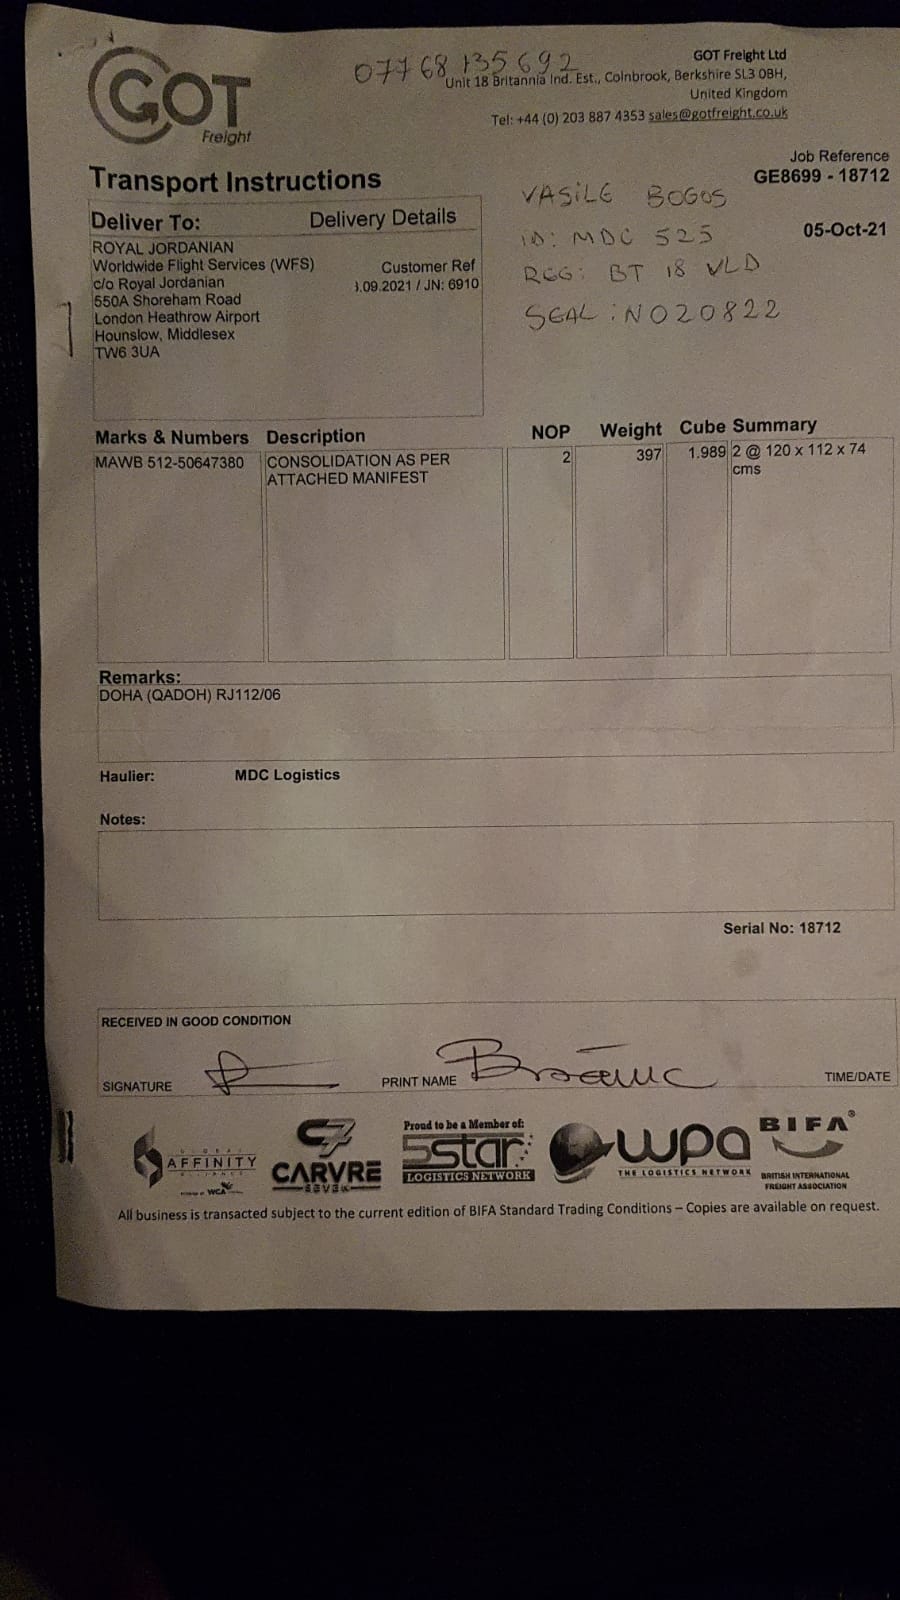 GOT
Freight
07768 135692
GOT Freight Ltd
Unit 18 Britannia Ind. Est., Colnbrook, Berkshire SL3 0BH,
United Kingdom
Tel: +44 (0) 203 887 4353 sales@gotfreight.co.uk
Transport Instructions
Job Reference
GE8699 - 18712
05-Oct-21
VASILE BOGOS
ID: MDC 525
REG: BT 18 VLD
SEAL: NO20822
Deliver To: Delivery Details
ROYAL JORDANIAN
Worldwide Flight Services (WFS)
c/o Royal Jordanian
550A Shoreham Road
London Heathrow Airport
Hounslow, Middlesex
TW6 3UA
Customer Ref
.09.2021 / JN: 6910
Marks & Numbers Description NOP Weight Cube Summary
MAWB 512-50647380 CONSOLIDATION AS PER 2 397 1.989 2 @ 120 x 112 x 74
ATTACHED MANIFEST cms
Remarks:
DOHA (QADOH) RJ112/06
Haulier: MDC Logistics
Notes:
Serial No: 18712
RECEIVED IN GOOD CONDITION
SIGNATURE PRINT NAME TIME/DATE
GLOBAL
AFFINITY
ALLIANCE
WCA
C7
CARVRE
SEVEN
Proud to be a Member of:
5star
LOGISTICS NETWORK
wpa
THE LOGISTICS NETWORK
BIFA®
BRITISH INTERNATIONAL
FREIGHT ASSOCIATION
All business is transacted subject to the current edition of BIFA Standard Trading Conditions – Copies are available on request.